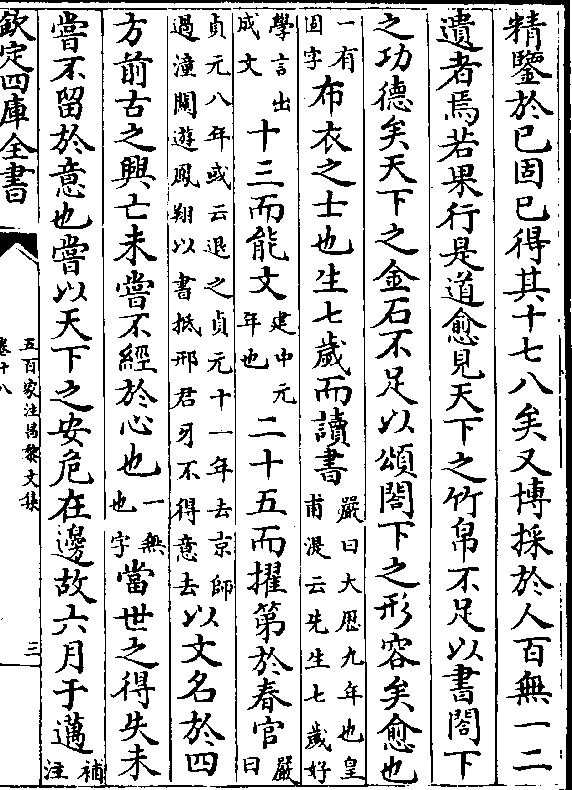 精鑒於已固已得其十七八矣又博採於人百無一二
遺者焉若果行是道愈見天下之竹帛不足以書閤下
之功德矣天下之金石不足以頌閤下之形容矣愈也
一有固字布衣之士也生七歲而讀書嚴曰大厯九年也皇甫湜云先生七歲好
學言出成文十三而能文建中元年也二十五而擢第於春官嚴曰
貞元八年或云退之貞元十一年去京師過潼關遊鳳翔以書抵邢君牙不得意去以文名於四
方前古之興亡未嘗不經於心也一無也字當世之得失未
嘗不留於意也嘗以天下之安危在邊故六月于邁補注
欽定四庫全書
五百家注昌黎文集
卷十八
三